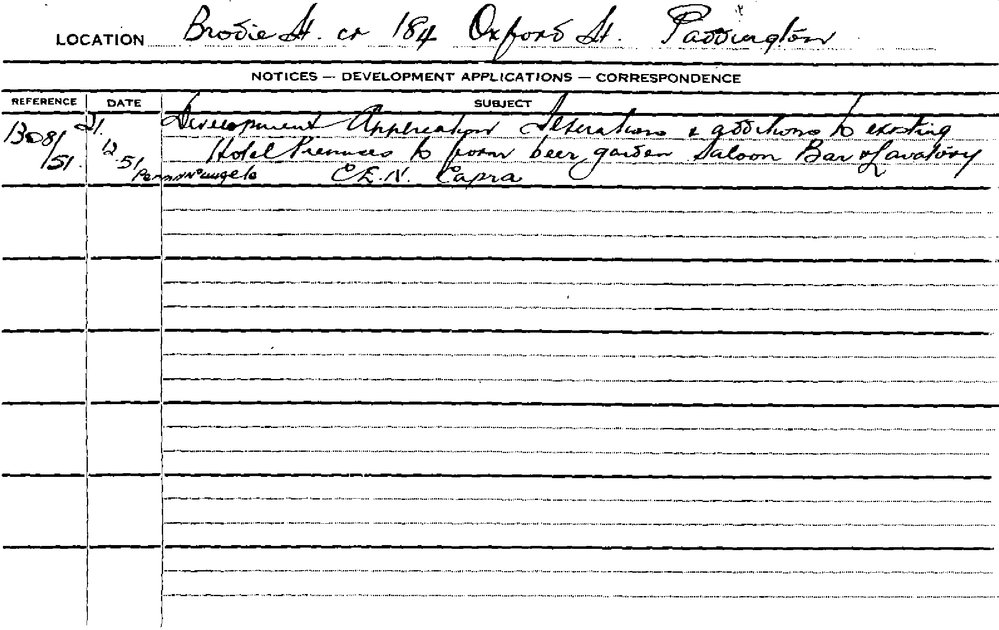 LOCATION Brodie St. cr 184 Oxford St. Paddington
NOTICES — DEVELOPMENT APPLICATIONS — CORRESPONDENCE
REFERENCE DATE SUBJECT
1308/51. 21.12.51. Development Application Alterations & additions to existing
Hotel Premises to form beer garden Saloon Bar & Lavatory
C.E.N. Capra